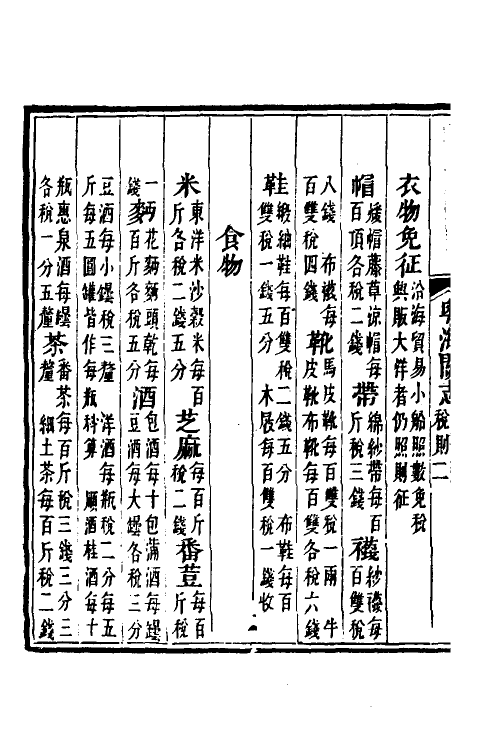 粵海關志 稅則二
衣物免征 沿海貿易小船照數免稅
與販大洋者仍照則征
帽 煖帽藤草涼帽每
百頂各稅二錢
帶 綿紗帶每百
斤稅三錢
襪 紗襪每
百雙稅
八錢 布襪每
百雙稅四錢
靴 馬皮靴每百雙稅一兩 牛
皮靴布靴每百雙各稅六錢
鞋 緞紬鞋每百雙稅二錢五分 布鞋每百
雙稅一錢五分 木屐每百雙稅一錢收
食物
米 東洋米沙穀米每百
斤各稅二錢五分
芝麻 每百斤
稅二錢
番荳 每百
斤稅
一
錢
麥 花麵麵頭乾每
百斤各稅五分
酒 包酒每十包滿酒每壜
豆酒每大壜各稅三分
豆酒每小壜稅三釐 洋酒每瓶稅二分每五
斤每五圓罐皆作每瓶科算 酒桂酒每十
瓶惠泉酒每壜
各稅一分五釐
茶 番茶每百斤稅三錢三分三
釐 細土茶每百斤稅二錢